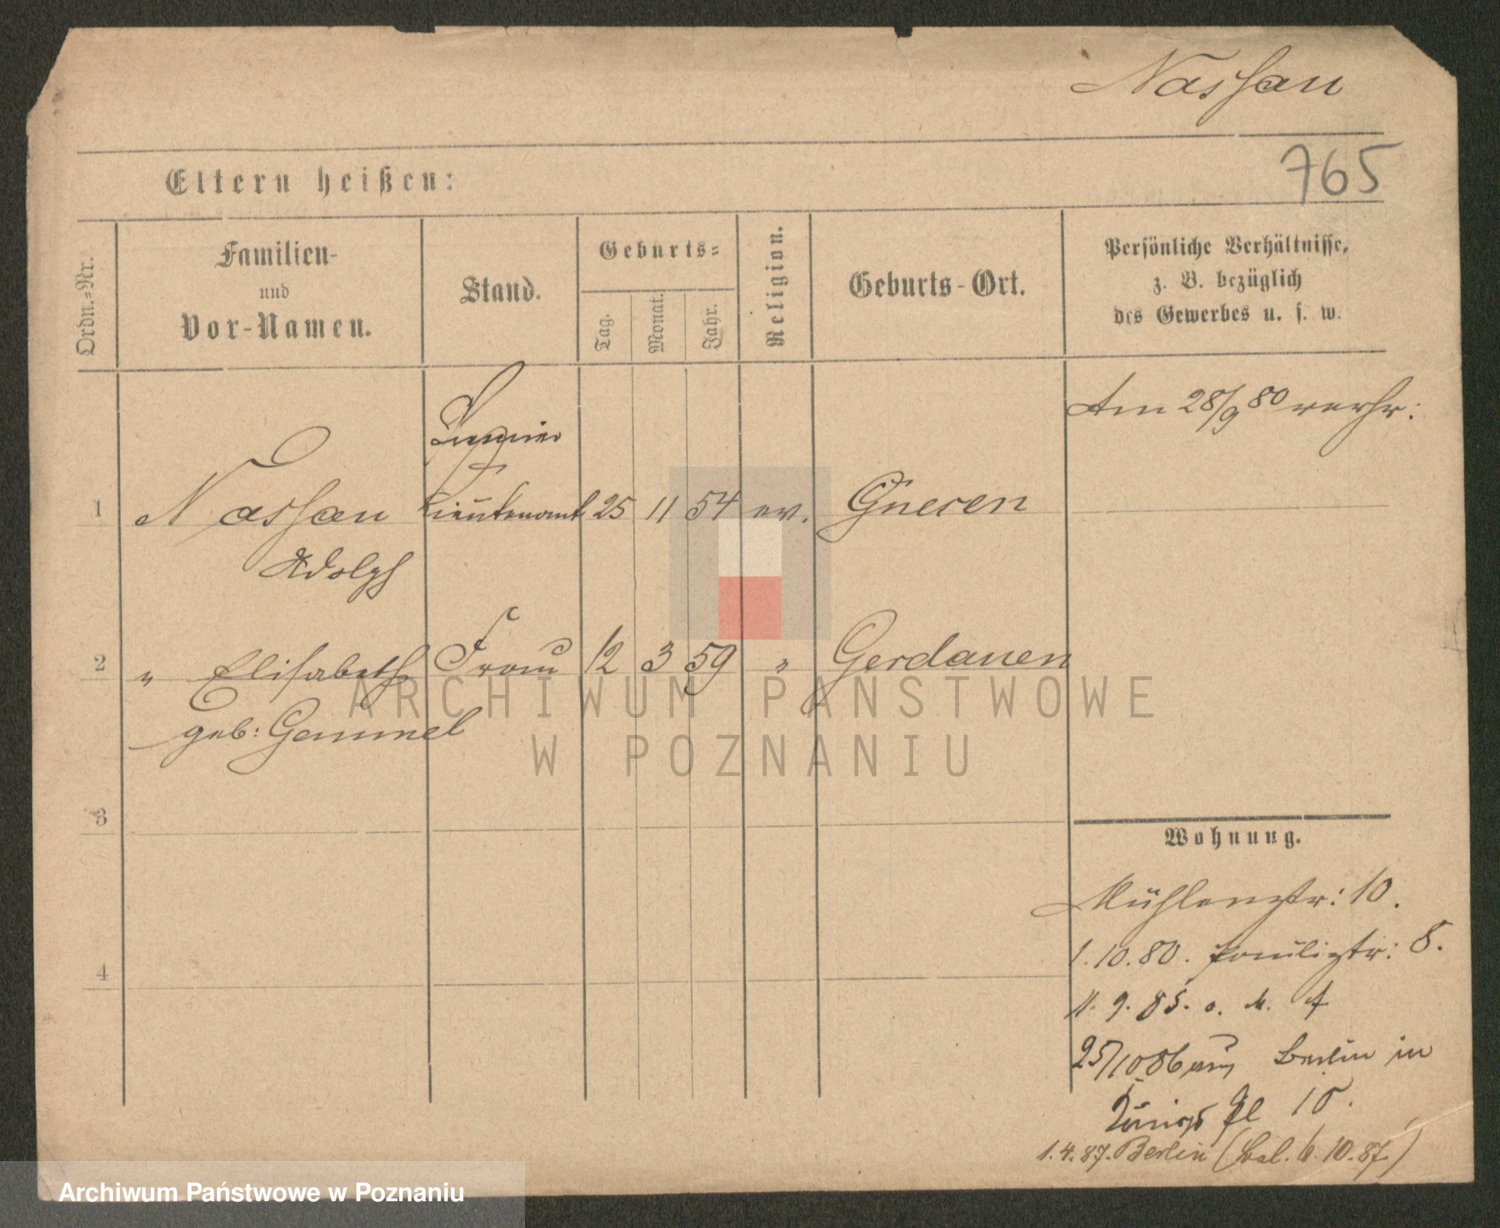 Nassau
765
Eltern heißen:
Ordn.-Nr.
Familien-
und
Vor-Namen.
Stand.
Geburts-
Tag.
Monat.
Jahr.
Religion.
Geburts-Ort.
Persönliche Verhältnisse,
z. B. bezüglich
des Gewerbes u. s. w.
Am 28/9 80 verhr:
1 Nassau Lieutenant 25 11 54 ev. Gnesen
Adolph
2 " Elisabeth Frau 12 3 59 " Gerdauen
geb: Gemmel
3
4
Wohnung.
Mühlenstr: 10.
1.10.80. Paulistr: 8.
11. 9. 85. o. M. A
25/10 86 aus Berlin in
Königs Pl 10.
1.4.87. Berlin (Bal. 6.10.87)
ARCHIWUM PAŃSTWOWE
W POZNANIU
Archiwum Państwowe w Poznaniu